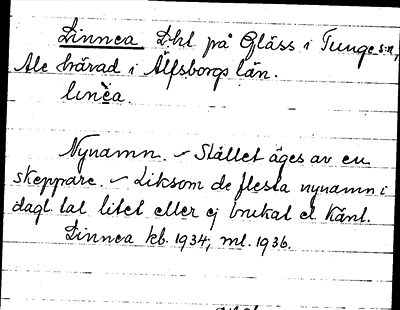 Linnea Lht på Gläss i Tunge s:n,
Ale härad i Älfsborgs län.
lınèa.
Nynamn. – Stället äges av en
skeppare. – Liksom de flesta nynamn i
dagl. tal litet eller ej brukat el. känt.
Linnea kb. 1934; ml. 1936.